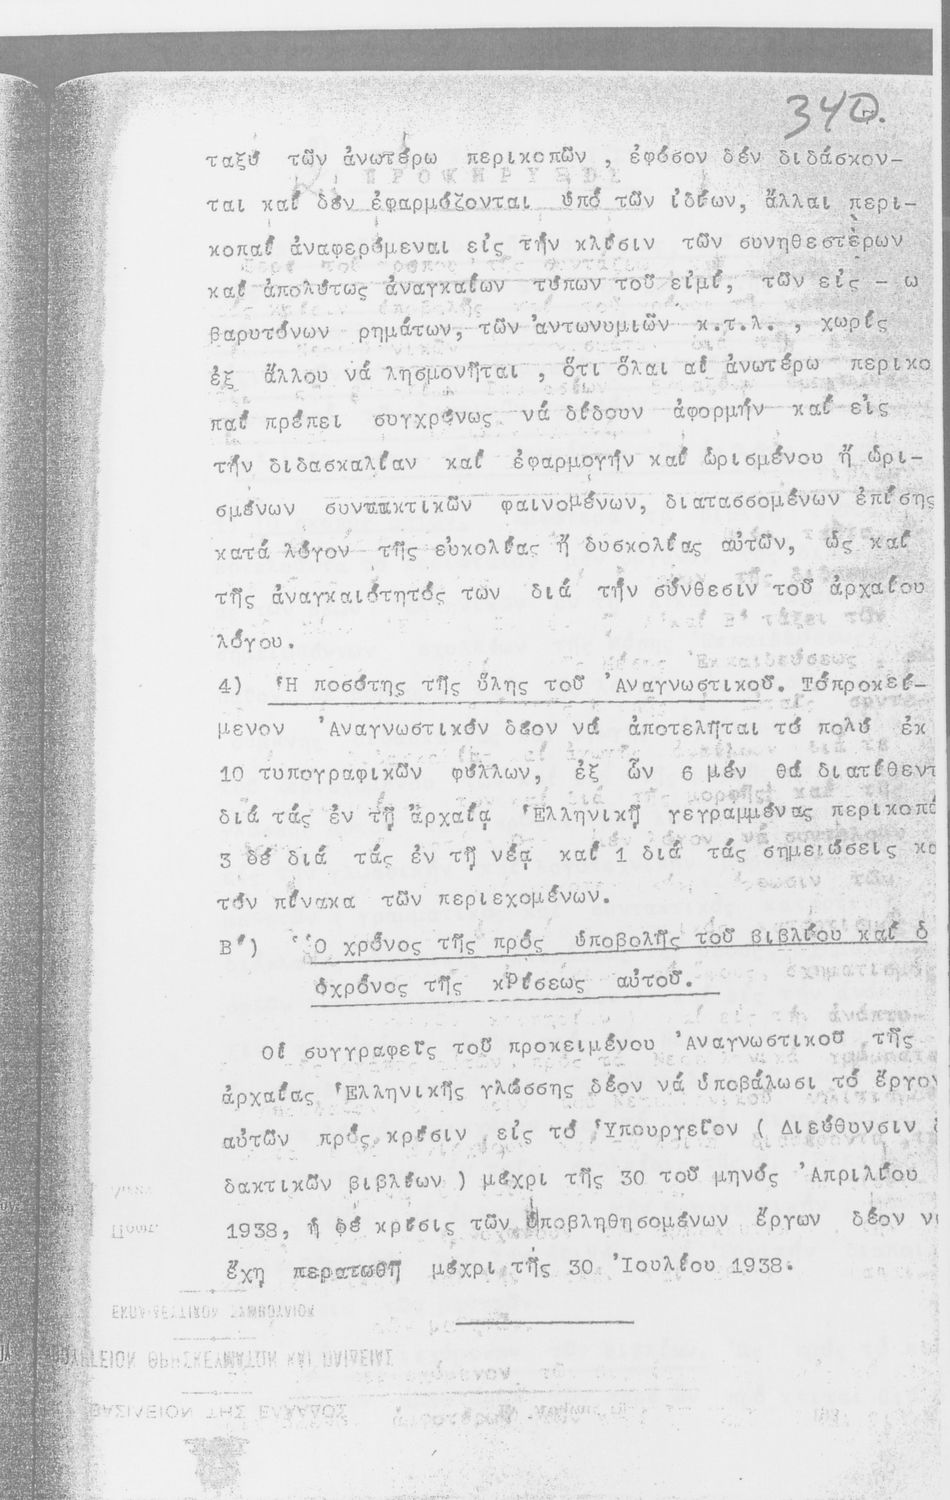 340.
ταξύ τῶν ἀνωτέρω περικοπῶν , ἐφόσον δέν διδάσκον-
ται καί δέν ἐφαρμόζονται ὑπό τῶν ἰδίων, ἄλλαι περι-
κοπαί ἀναφερόμεναι εἰς τήν κλίσιν τῶν συνηθεστέρων
καί ἀπολύτως ἀναγκαίων τύπων τοῦ εἰμί, τῶν εἰς - ω
βαρυτόνων ρημάτων, τῶν ἀντωνυμιῶν κ.τ.λ. , χωρίς
ἐξ ἄλλου νά λησμονῆται , ὅτι ὅλαι αἱ ἀνωτέρω περικο
παί πρέπει συγχρόνως νά δίδουν ἀφορμήν καί εἰς
τήν διδασκαλίαν καί ἐφαρμογήν καί ὡρισμένου ἤ ὡρι-
σμένων συντακτικῶν φαινομένων, διατασσομένων ἐπίσης
κατά λόγον τῆς εὐκολίας ἤ δυσκολίας αὐτῶν, ὡς καί
τῆς ἀναγκαιότητός των διά τήν σύνθεσιν τοῦ ἀρχαίου
λόγου.
4) Ἡ ποσότης τῆς ὕλης τοῦ Ἀναγνωστικοῦ. Τόπροκεί-
μενον Ἀναγνωστικόν δέον νά ἀποτελῆται τό πολύ ἐκ
10 τυπογραφικῶν φύλλων, ἐξ ὧν 6 μέν θά διατίθεντ
διά τάς ἐν τῇ ἀρχαίᾳ Ἑλληνικῇ γεγραμμένας περικοπά
3 δέ διά τάς ἐν τῇ νέᾳ καί 1 διά τάς σημειώσεις κα
τόν πίνακα τῶν περιεχομένων.
Β΄) Ὁ χρόνος τῆς πρός ὑποβολῆς τοῦ βιβλίου καί ὁ
ὁχρόνος τῆς κρίσεως αὐτοῦ.
Οἱ συγγραφεῖς τοῦ προκειμένου Ἀναγνωστικοῦ τῆς
ἀρχαίας Ἑλληνικῆς γλώσσης δέον νά ὑποβάλωσι τό ἔργον
αὐτῶν πρός κρίσιν εἰς τό Ὑπουργεῖον ( Διεύθυνσιν
δακτικῶν βιβλίων ) μέχρι τῆς 30 τοῦ μηνός Ἀπριλίου
1938, ἡ δέ κρίσις τῶν ὑποβληθησομένων ἔργων δέον ν
ἔχῃ περατωθῆ μέχρι τῆς 30 Ἰουλίου 1938.